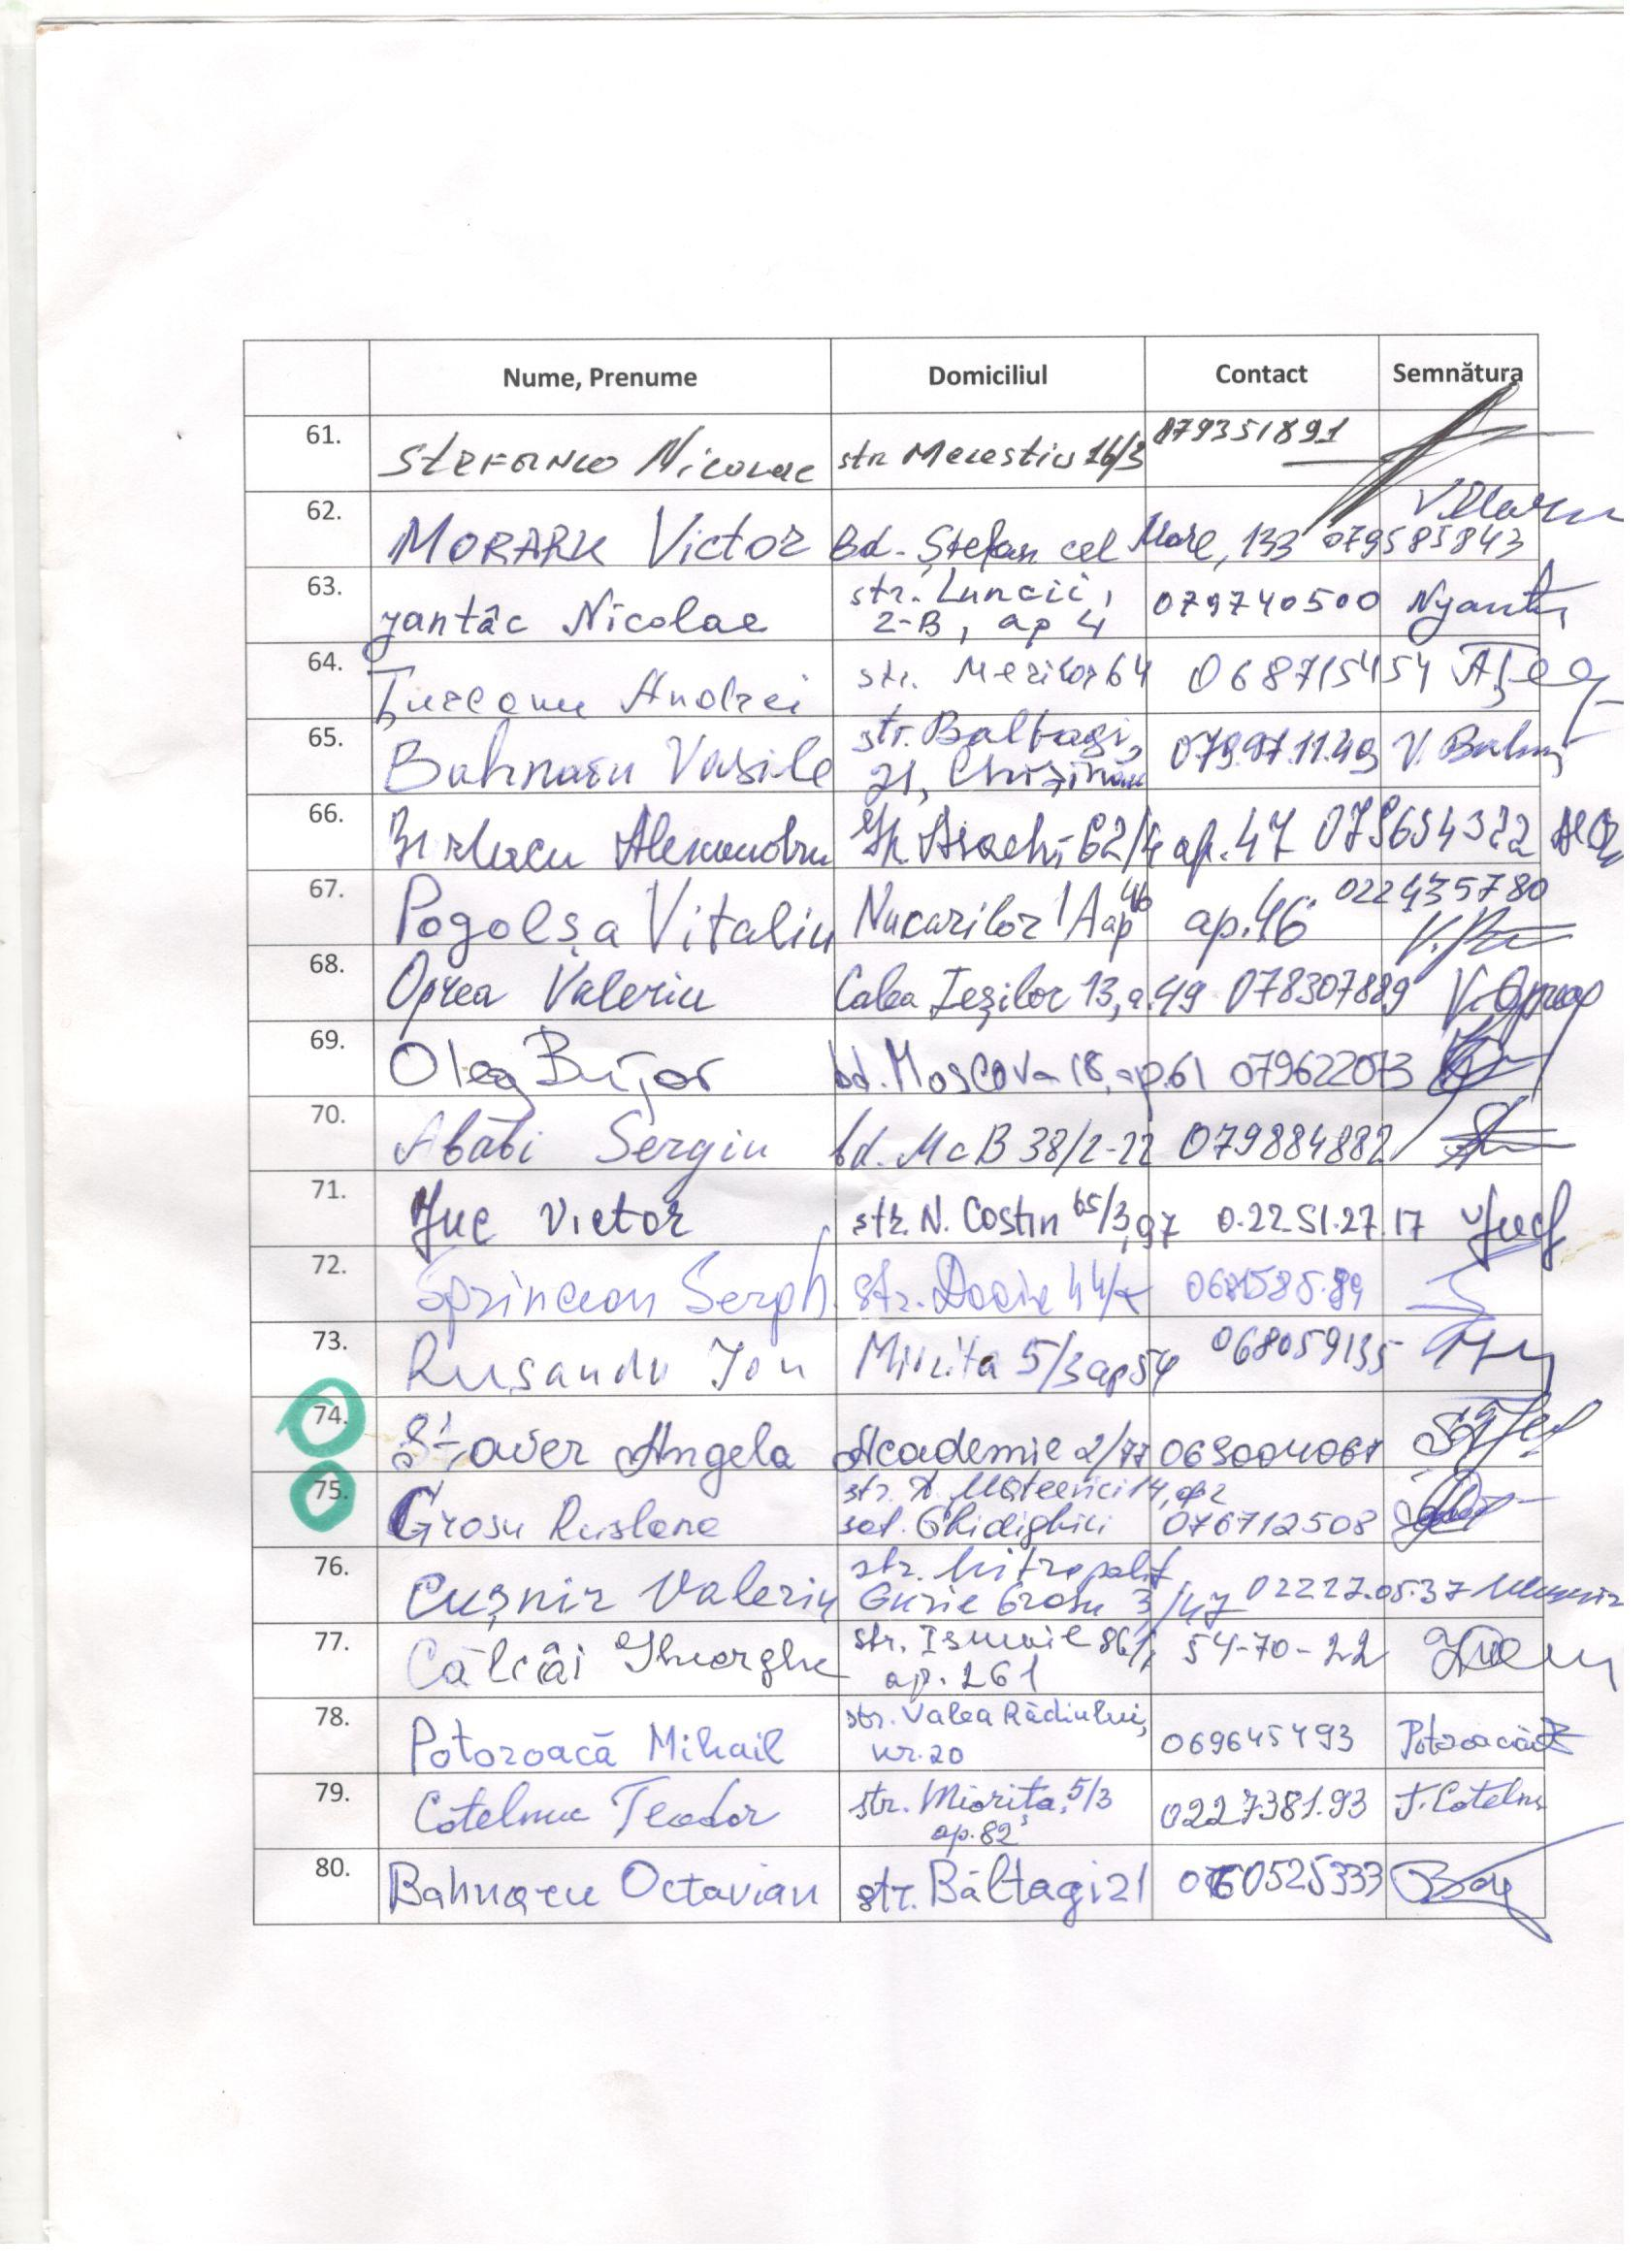 Nume, Prenume Domiciliul Contact Semnătura
61. Nicolae str 16/3 079351891
62. MORARU Victor Bd. Ștefan cel Mare, 133 079585843
63. Jantâc Nicolae str. Luncii, 079740500
2-B, ap 4
64. Țurcanu Andrei str. Merilor 64 068715454
65. Bahnaru Vasile str. Baltagi, 079.97.11.49 V. Bahn
21, Chișinău
66. Alexandru Gh. Asachi 62/4 ap. 47 079654322
67. Pogolșa Vitaliu Nucarilor 1A ap 46 ap. 46 022435780
68. Oprea Valeriu Calea Ieșilor 13, a. 49 078307889 V. Oprea
69. Oleg Bujor bd. Moscova 18, ap. 61 079622073
70. Ababi Sergiu bd. McB 38/2-22 079884882
71. Juc Victor str. N. Costin 65/3, 97 0.22 51.27.17
72. Sprincean str. Dacia 44/
73. Rusandu Ion Miorita 5/3 ap 54 068059135
74. Staver Angela Academie 2/77 069004067
75. Grosu Ruslana str. A. Mateevici 14, ap 2
sat. Ghidighici 076712508
76. Cușnir Valeriu str. Mitropolit
Gurie Grosu 3/47 02227.05.37
77. Călcâi Gheorghe str. Ismail 86/ 54-70-22
ap. 261
78. Potoroacă Mihail str. Valea Rădiului, 069645493 Potoroacă
nr. 20
79. Cotelnic Teodor str. Miorița, 5/3 022738193 T. Cotelnic
ap. 82
80. Bahnaru Octavian str. Băltagi 21 060525333